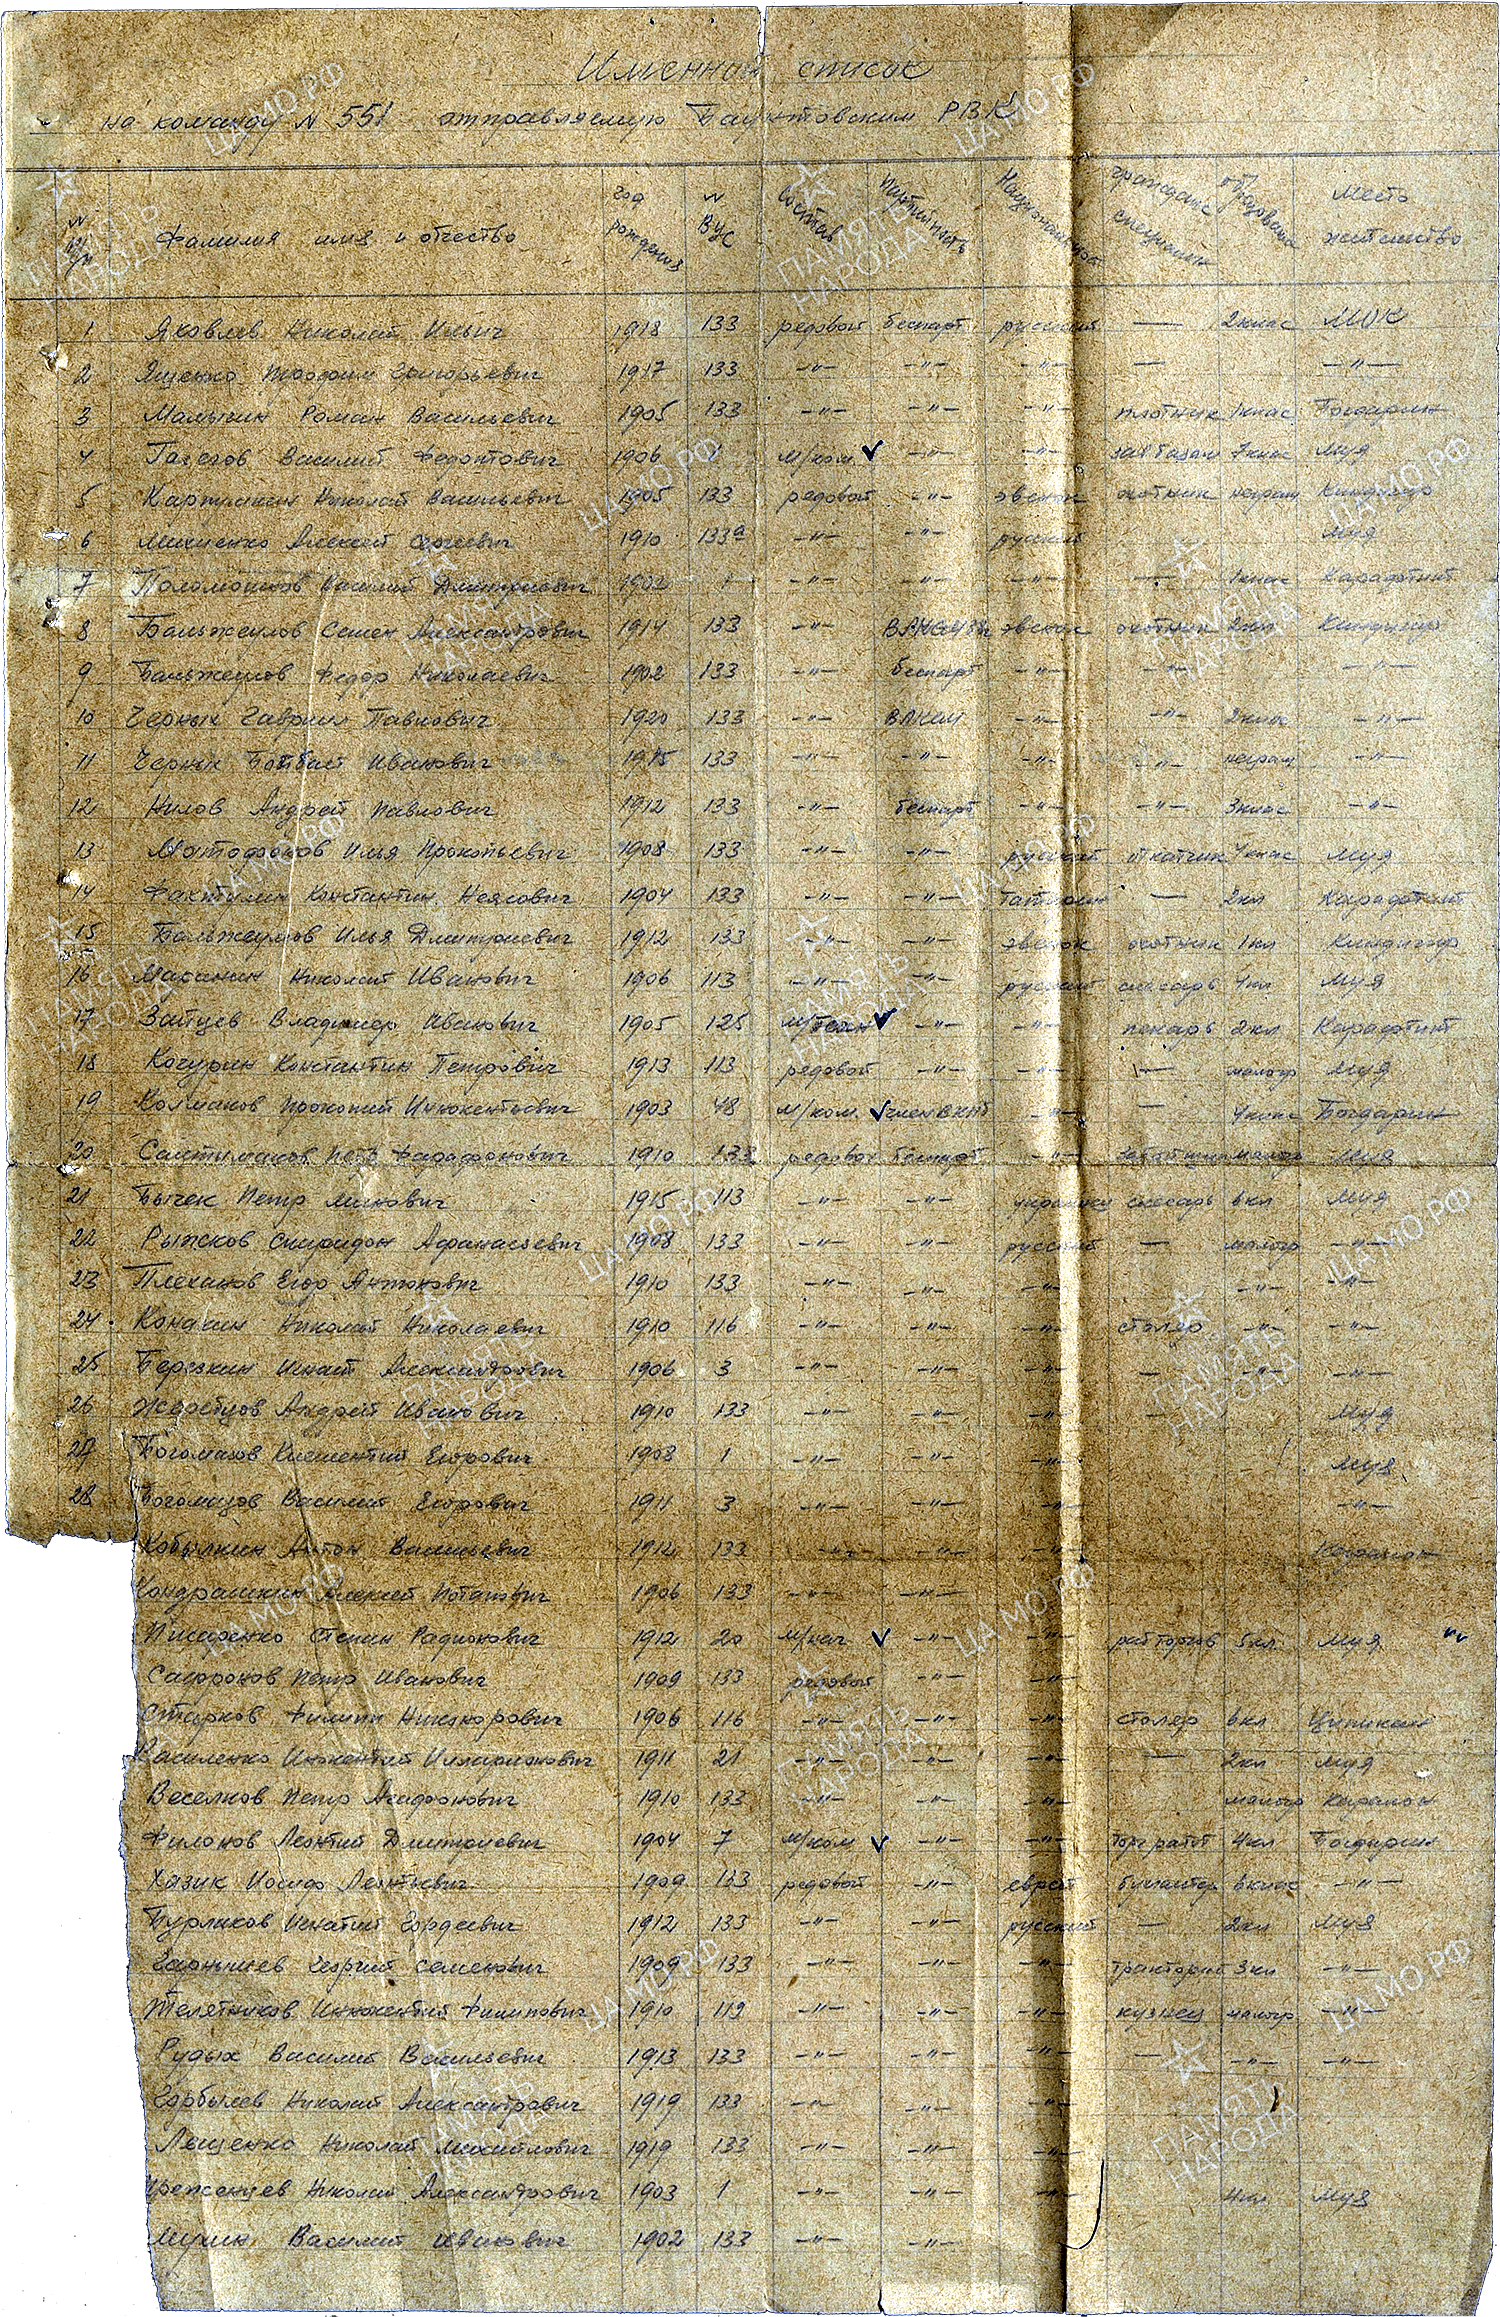 Именной список
на команду № 551 отправляемую Баунтовским РВК
№ п/п Фамилия имя и отчество год рождения № ВУС Состав Партийность Национальност гражданс специальн образован Место жительство
1 Яковлев Николай Ильич 1918 133 редовой беспарт русский — 2 клас МОК
2 Ященко Трофим Григорьевич 1917 133 -"- -"- -"- — -"-
3 Малыгин Роман Васильевич 1905 133 -"- -"- -"- плотник 1 клас Богдарин
4 Василий Федотович 1906 1 м/ком -"- -"- зав базам 7 клас Муя
5 Николай Васильевич 1905 133 редовой -"- эвенок охотник неграм Киндигир
6 Михненко Алексей Сергеевич 1910 133а -"- -"- русский Муя
7 Поломошнов Василий Дмитриевич 1902 1 -"- -"- -"- — 1 клас Карафтит
8 Бальжеулов Семен Александрович 1914 133 -"- эвенок охотник 2 кл Киндигир
9 Бальжеулов Федор Николаевич 1902 133 -"- беспарт -"- -"- -"-
10 Черных Гаврил Павлович 1920 133 -"- ВЛКСМ -"- -"- 2 клас -"-
11 Черных Иванович 1915 133 -"- -"- -"- -"- неграм -"-
12 Нилов Андрей Павлович 1912 133 -"- беспарт -"- -"- 3 клас -"-
13 Илья Прокопьевич 1908 133 -"- -"- русский откатчик 4 клас Муя
14 Константин 1904 133 -"- -"- — 2 кл Карафтит
15 Бальжеулов Илья Дмитриевич 1912 133 -"- -"- эвенок охотник 1 кл Киндигир
16 Масанин Николай Иванович 1906 113 -"- -"- русский слесарь 4 кл Муя
17 Зайцев Владимир Иванович 1905 125 -"- -"- пекарь 2 кл Карафтит
18 Кочурин Константин Петрович 1913 113 редовой -"- -"- — малогр Муя
19 Колмаков Прокопий Инокентьевич 1903 48 м/ком член ВКПб -"- — 4 клас Богдарин
20 Фарафонович 1910 133 редовой беспарт -"- забойщик малогр Муя
21 Бычек Петр 1915 113 -"- -"- украинец слесарь 6 кл Муя
22 Рыжков Спиридон Афанасьевич 1908 133 -"- -"- русский — малогр -"-
23 Плеханов Егор Антонович 1910 133 -"- -"- -"- -"- -"-
24 Конакин Николай Николаевич 1910 116 -"- -"- -"- столяр -"- -"-
25 Березкин Игнат Александрович 1906 3 -"- -"- -"- — -"- -"-
26 Жеребцов Андрей Иванович 1910 133 -"- -"- -"- — Муя
27 Богомазов Климентий Егорович 1908 1 -"- -"- -"- Муя
28 Богомазов Василий Егорович 1911 3 -"- -"- -"- -"-
Кобылкин Антон Васильевич 1912 133 -"- -"- -"- Каралон
Кондрашкин Алексей Потапович 1906 133 -"- -"-
Писаренко Степан Радионович 1912 20 м/нач -"- -"- раб торгов 5 кл Муя
Сафронов Петр Иванович 1909 133 редовой -"- -"-
Старков Филипп Никанорович 1906 116 -"- -"- -"- столяр 6 кл Ципикан
Василенко Инокентий Илларионович 1911 21 -"- -"- -"- — 2 кл Муя
Веселков Петр Агафонович 1910 133 -"- -"- -"- малогр Каралон
Филонов Леонтий Дмитриевич 1904 7 м/ком -"- -"- торг работ 4 кл Богдарин
Хазик Иосиф Леонтьевич 1909 133 редовой -"- еврей бухгалтер 6 клас -"-
Бурлаков Игнатий Гордеевич 1912 133 -"- -"- русский — 2 кл Муя
Георгий Семенович 1909 133 -"- -"- -"- тракторист 3 кл -"-
Телятников Инокентий Филипович 1910 119 -"- -"- -"- кузнец малогр -"-
Рудых Василий Васильевич 1913 133 -"- -"- -"- — -"- -"-
Горбылев Николай Александрович 1919 133 -"- -"- -"-
Лещенко Николай Михайлович 1919 133 -"- -"- -"-
Николай Александрович 1903 1 -"- -"- -"- 4 кл Муя
Мухин Василий Иванович 1902 133 -"- -"-
ЦА МО РФ
ПАМЯТЬ НАРОДА